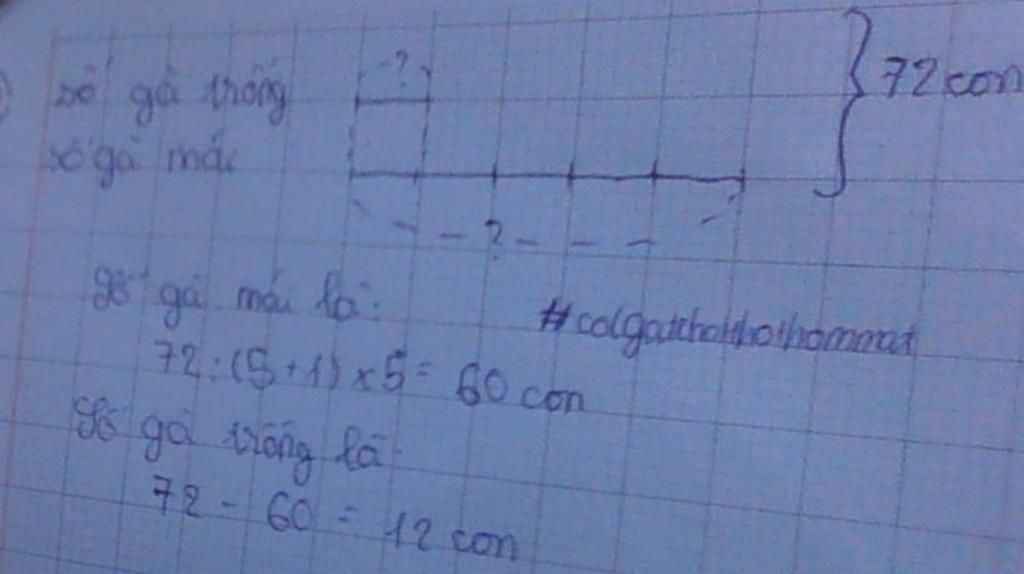 số gà trống
?
72 con
số gà mái
?
Số gà mái là:
72 : (5 + 1) x 5 = 60 con
Số gà trống là
72 - 60 = 12 con